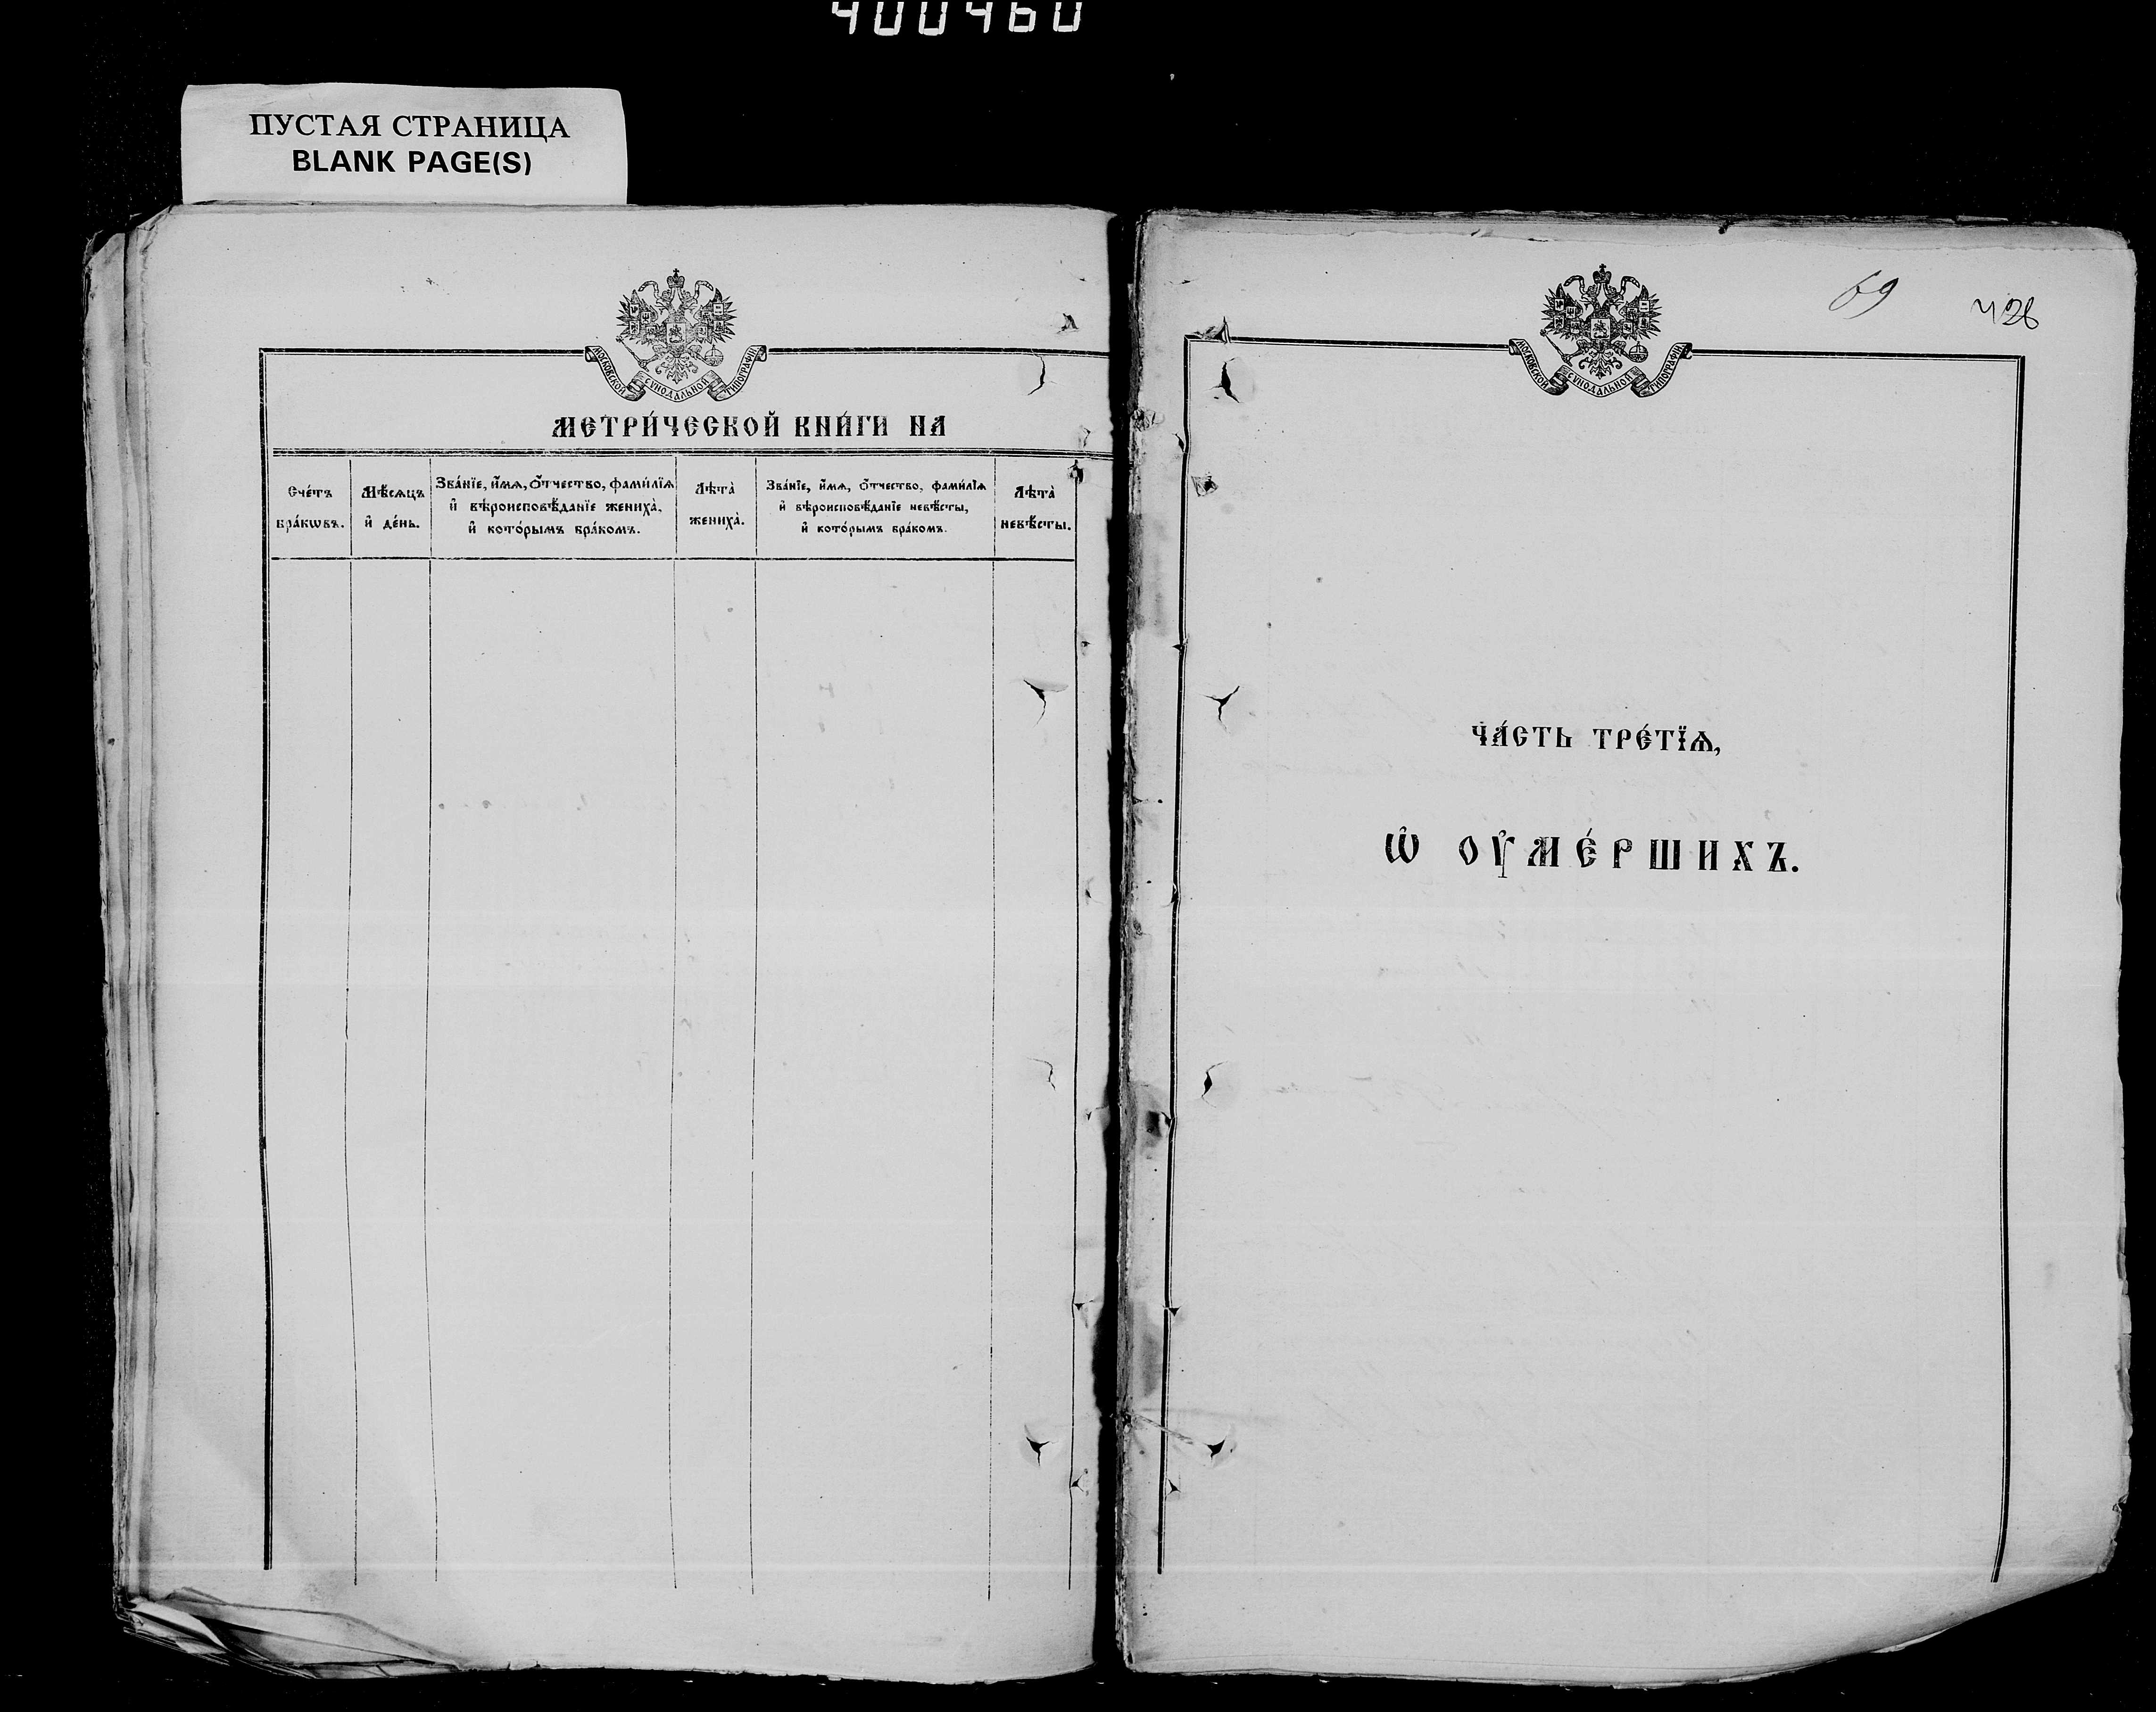 400460
ПУСТАЯ СТРАНИЦА
BLANK PAGE(S)
МОСКОВСКОЙ СѴНОДАЛЬНОЙ ТИПОГРАФІИ
МЕТРИ́ЧЕСКОЙ КНИ́ГИ НА
Сче́тъ
бра́кѡвъ.
Мѣ́сяцъ
и҆ де́нь.
Зва́нїе, и҆́мѧ, ѻ҆́тчество, фами́лїѧ
и҆ вѣроисповѣ́данїе жениха̀,
и҆ кото́рымъ бра́комъ.
Лѣта̀
жениха̀.
Зва́нїе, и҆́мѧ, ѻ҆́тчество, фами́лїѧ
и҆ вѣроисповѣ́данїе невѣ́сты,
и҆ кото́рымъ бра́комъ.
Лѣта̀
невѣ́сты.
69
428
МОСКОВСКОЙ СѴНОДАЛЬНОЙ ТИПОГРАФІИ
ЧА́СТЬ ТРЕ́ТЇѦ,
Ѡ҆ ОУ҆МЕ́РШИХЪ.